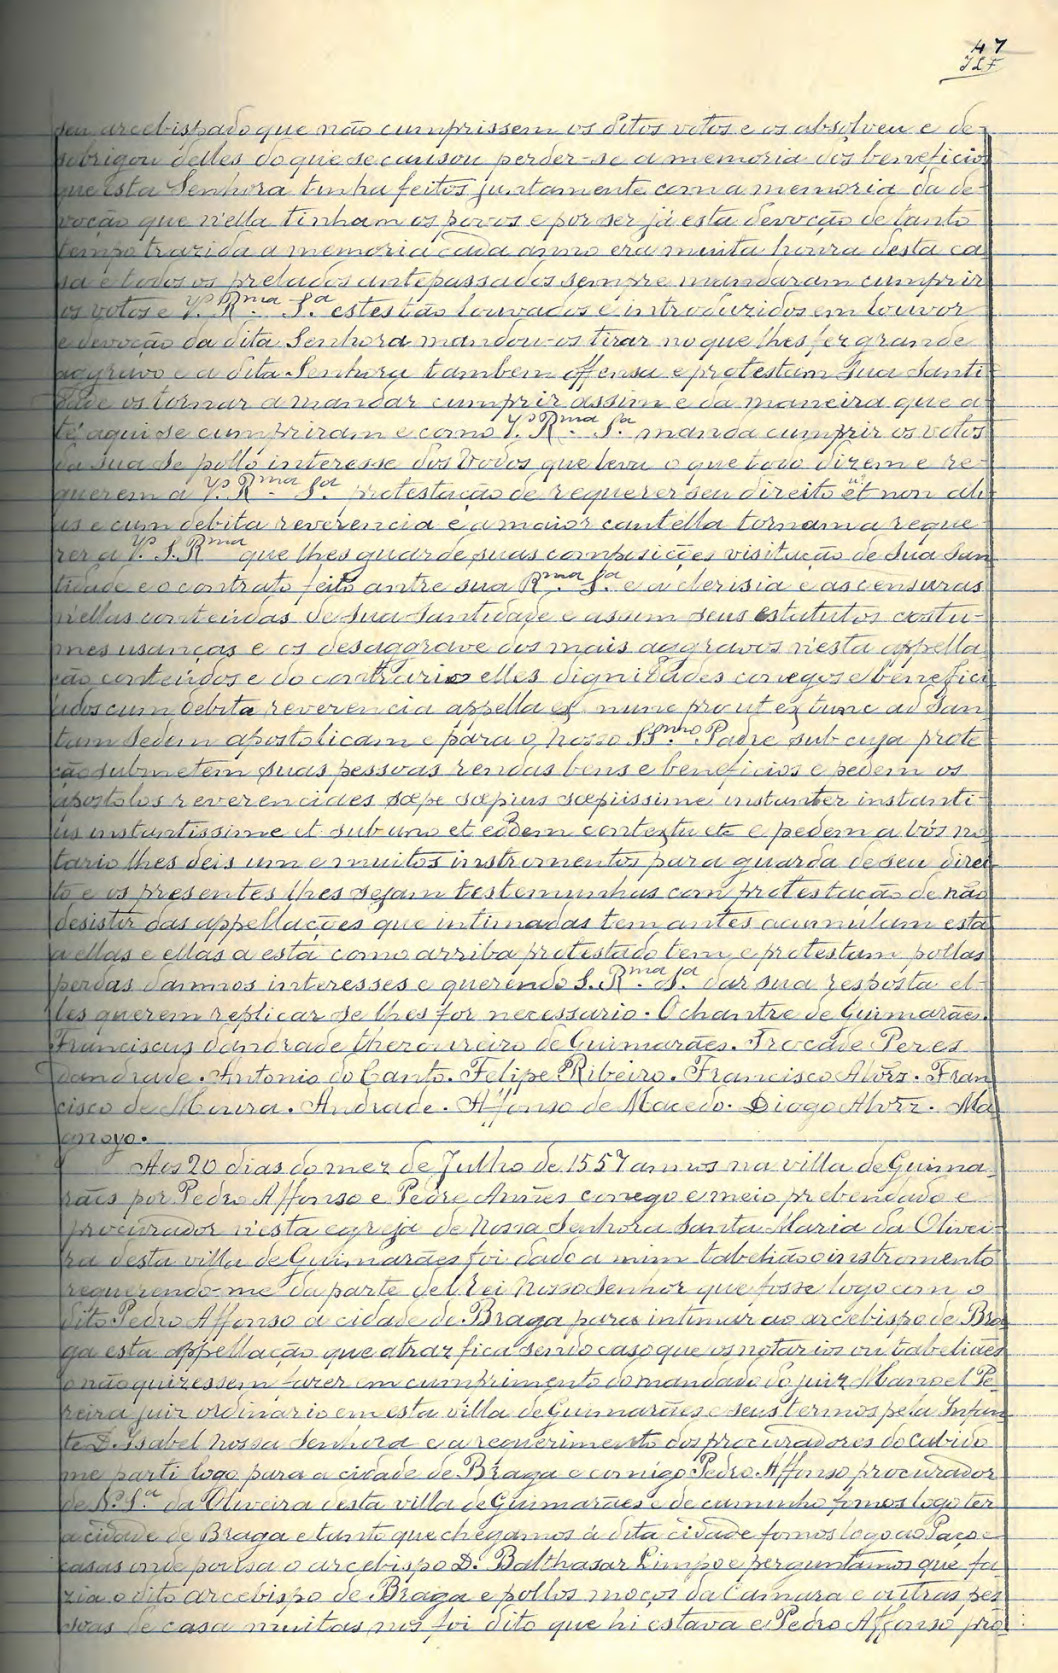 47
JLF
seu arcebispado que não cumprissem os ditos votos e os absolveu e de-
sobrigou delles do que se causou perder-se a memoria dos beneficios
que esta Senhora tinha feitos juntamente com a memoria da de-
voção que n'ella tinham os povos e por ser já esta devoção de tanto
tempo trazida a memoria cada anno era muita honra desta ca-
sa e todos os prelados antepassados sempre mandaram cumprir
os votos e V.ª R.ma S.ª estes tão louvados e introduzidos em louvor
e devoção da dita Senhora mandou-os tirar no que lhes fez grande
aggravo e a dita Senhora tambem offensa e protestam Sua Santi-
dade os tornar a mandar cumprir assim e da maneira que a-
té aqui se cumpriram e como V.ª R.ma S.ª manda cumprir os votos
da sua Sé pollo interesse dos que leva o que todo dizem e re-
querem a V.ª R.ma S.ª protestação de requerer seu direito et non ali-
us e cum debita reverencia e a maior cautella tornam a reque-
rer a V.ª S. R.ma que lhes guarde suas composições visitação de Sua San-
tidade e o contrato feito antre sua R.ma S.ª e a clerisia e as censuras
n'ellas conteúdas de Sua Santidade e assim seus estatutos costu-
mes usanças e os desaggrave dos mais aggravos n'esta appella-
ção conteúdos e do contrario elles dignidades conegos e benefici-
ados cum debita reverencia appella ex nunc prout ex tunc ad San-
tam Sedem apostolicam e para o Nosso B.mo Padre sub cuja prote-
ção submetem suas pessoas rendas bens e beneficios e pedem os
apostolos reverenciaes sæpe sæpius sæpiissime instanter instanti-
us instantissime et sub uno et eodem contextu etc e pedem a vós no-
tario lhes deis um e muitos instromentos para guarda de seu direi-
to e os presentes lhes sejam testemunhas com protestação de não
desistir das appellações que intimadas tem antes acumulam esta
a ellas e ellas a esta como arriba protestado tem e protestam pollas
perdas damnos interesses e querendo S. R.ma S.ª dar sua resposta el-
les querem replicar se lhes for necessario. O chantre de Guimarães.
Franciscus dandrade thezoureiro de Guimarães. Peres
dandrade. Antonio do Canto. Felipe Ribeiro. Francisco Alvrz. Fran-
cisco de Moura. Andrade. Affonso de Macedo. Diogo Alvrz. Ma-
Aos 20 dias do mez de Julho de 1557 annos na villa de Guima-
rães por Pedro Affonso e Pedre Annes conego e meio prebendado e
procurador n'esta egreja de Nossa Senhora Santa Maria da Olivei-
ra desta villa de Guimarães foi dado a mim tabelião o instromento
requerendo-me da parte del rei Nosso Senhor que fosse logo com o
dito Pedro Affonso á cidade de Braga para intimar ao arcebispo de Bra-
ga esta appellação que atraz fica sendo caso que os notarios ou tabeliães
o não quizessem fazer em cumprimento do mandado do juiz Manoel Pe-
reira juiz ordinario em esta villa de Guimarães e seus termos pela Infan-
te D. Isabel Nossa Senhora e a requerimento dos procuradores do Cabido
me parti logo para a cidade de Braga e comigo Pedro Affonso procurador
de N.ª S.ª da Oliveira desta villa de Guimarães e de caminho fomos logo ter
a cidade de Braga e tanto que chegamos á dita cidade fomos logo ao Paço e
casas onde pousa o arcebispo D. Balthasar Limpo e perguntamos que fa-
zia o dito arcebispo de Braga e pollos moços da Camara e outras pes-
soas de casa muitas nos foi dito que hi estava e Pedro Affonso pro-